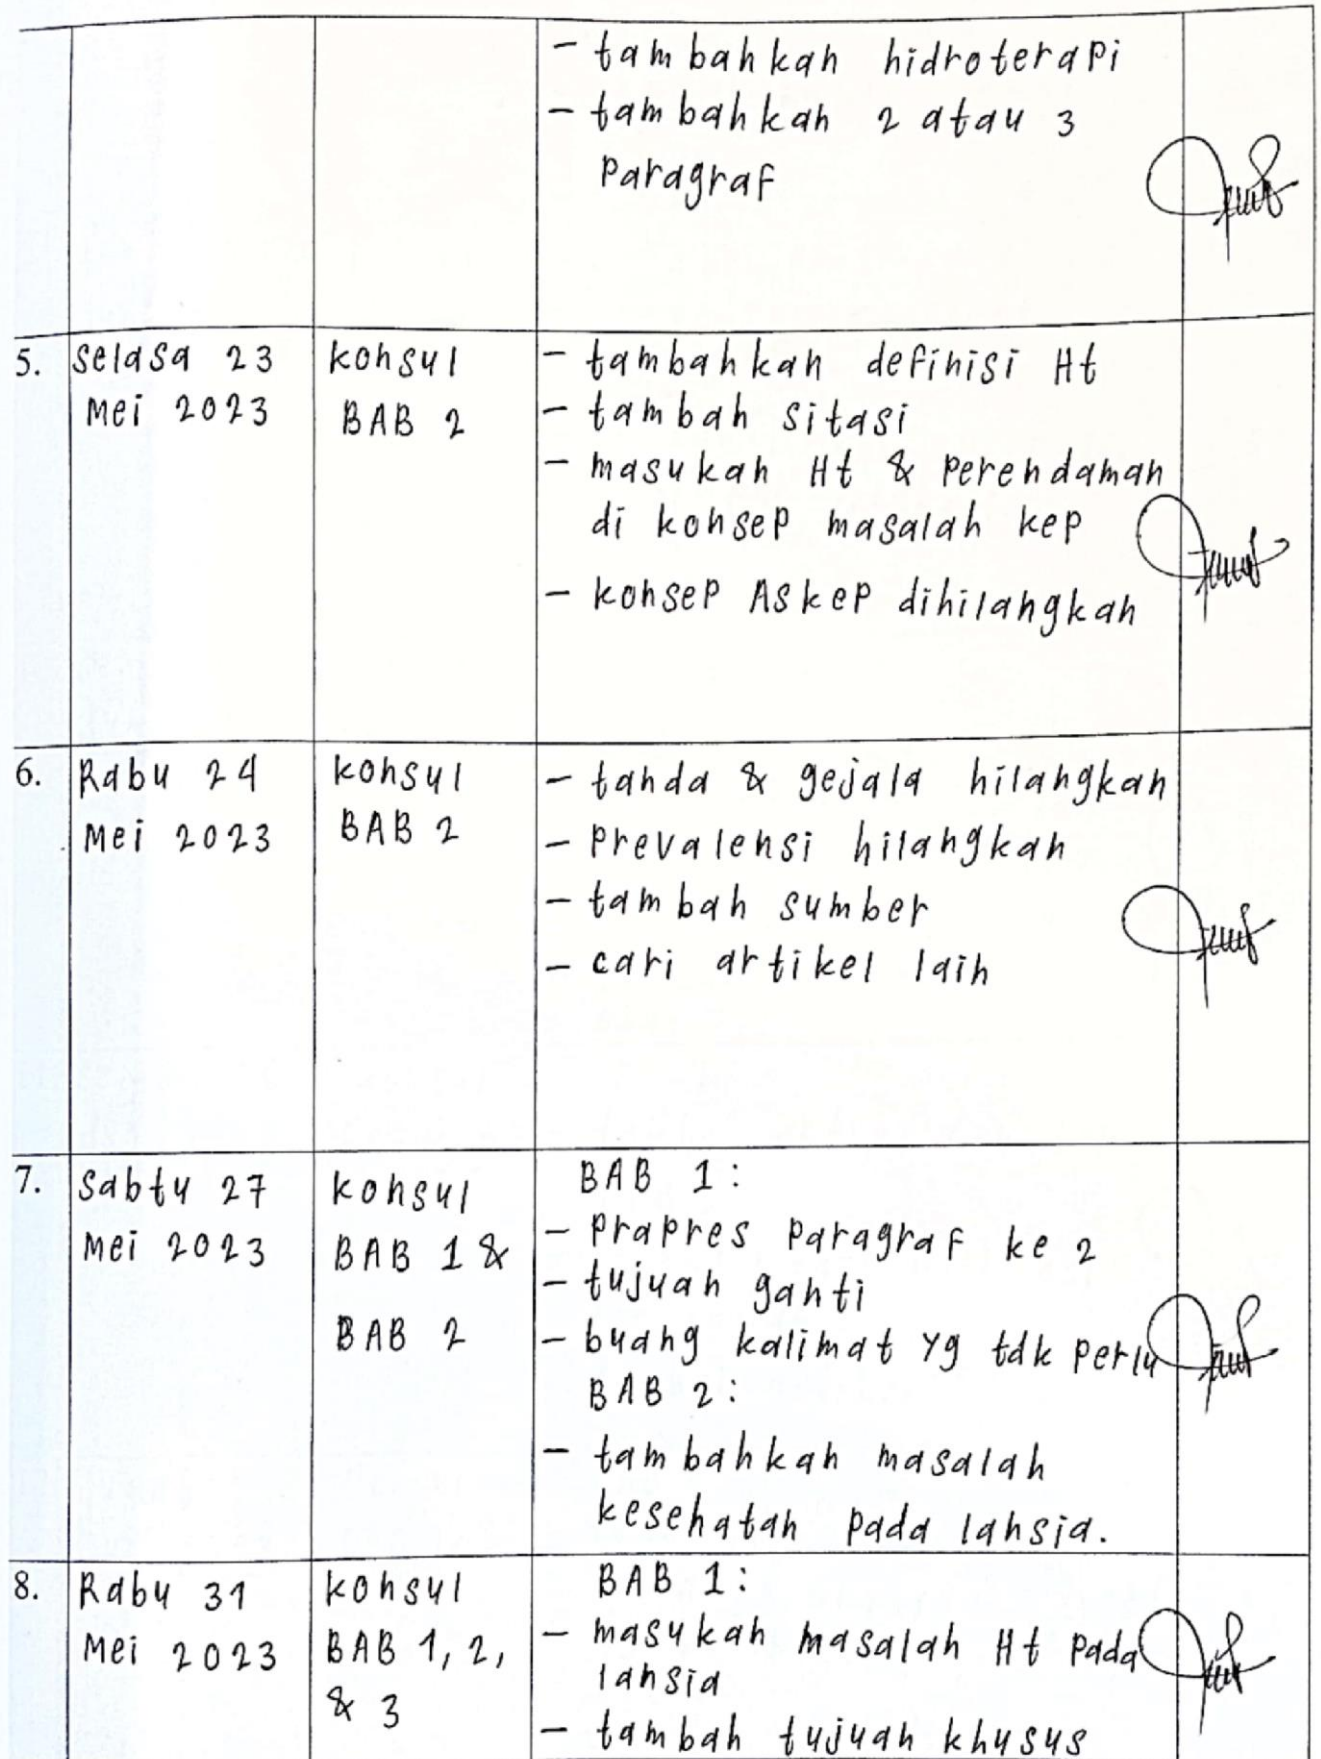 - tambahkan hidroterapi
- tambahkan 2 atau 3
paragraf
5. Selasa 23 Mei 2023
konsul BAB 2
- tambahkan definisi Ht
- tambah sitasi
- masukan Ht & perendaman
di konsep masalah kep
- konsep Askep dihilangkan
6. Rabu 24 Mei 2023
konsul BAB 2
- tanda & gejala hilangkan
- prevalensi hilangkan
- tambah sumber
- cari artikel lain
7. Sabtu 27 Mei 2023
konsul BAB 1 & BAB 2
BAB 1:
- prapres paragraf ke 2
- tujuan ganti
- buang kalimat yg tdk perlu
BAB 2:
- tambahkan masalah
kesehatan pada lansia.
8. Rabu 31 Mei 2023
konsul BAB 1, 2, & 3
BAB 1:
- masukan masalah Ht pada
lansia
- tambah tujuan khusus